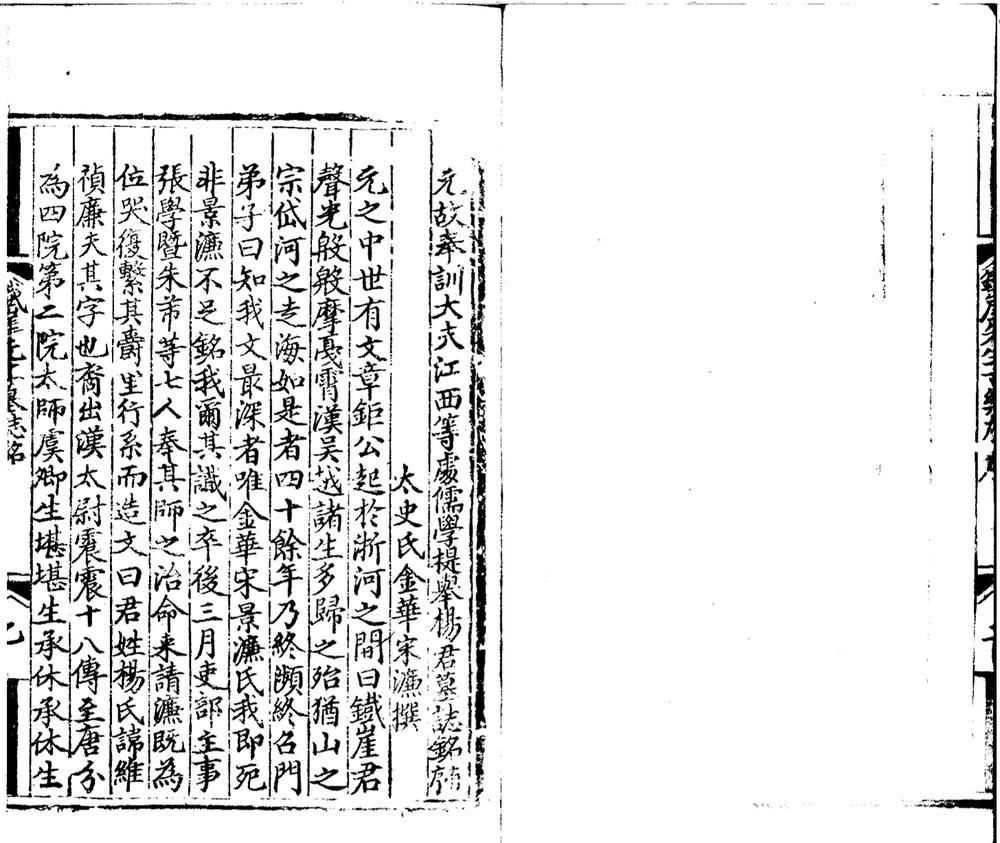 元故奉訓大夫江西等處儒學提舉楊君墓誌銘有
太史氏金華宋濂撰
元之中世有文章鉅公起於浙河之間曰鐵崖君
聲光殷殷摩戞霄漢吳越諸生多歸之殆猶山之
宗岱河之走海如是者四十餘年乃終瀕終召門
弟子曰知我文最深者唯金華宋景濂氏我即死
非景濂不足銘我爾其識之卒後三月吏部主事
張學曁朱芾等七人奉其師之治命来請濂既為
位哭復繫其爵里行系而造文曰君姓楊氏諱維
禎廉夫其字也裔出漢太尉震震十八傳至唐分
為四院第二院太師虞卿生堪堪生承休承休生